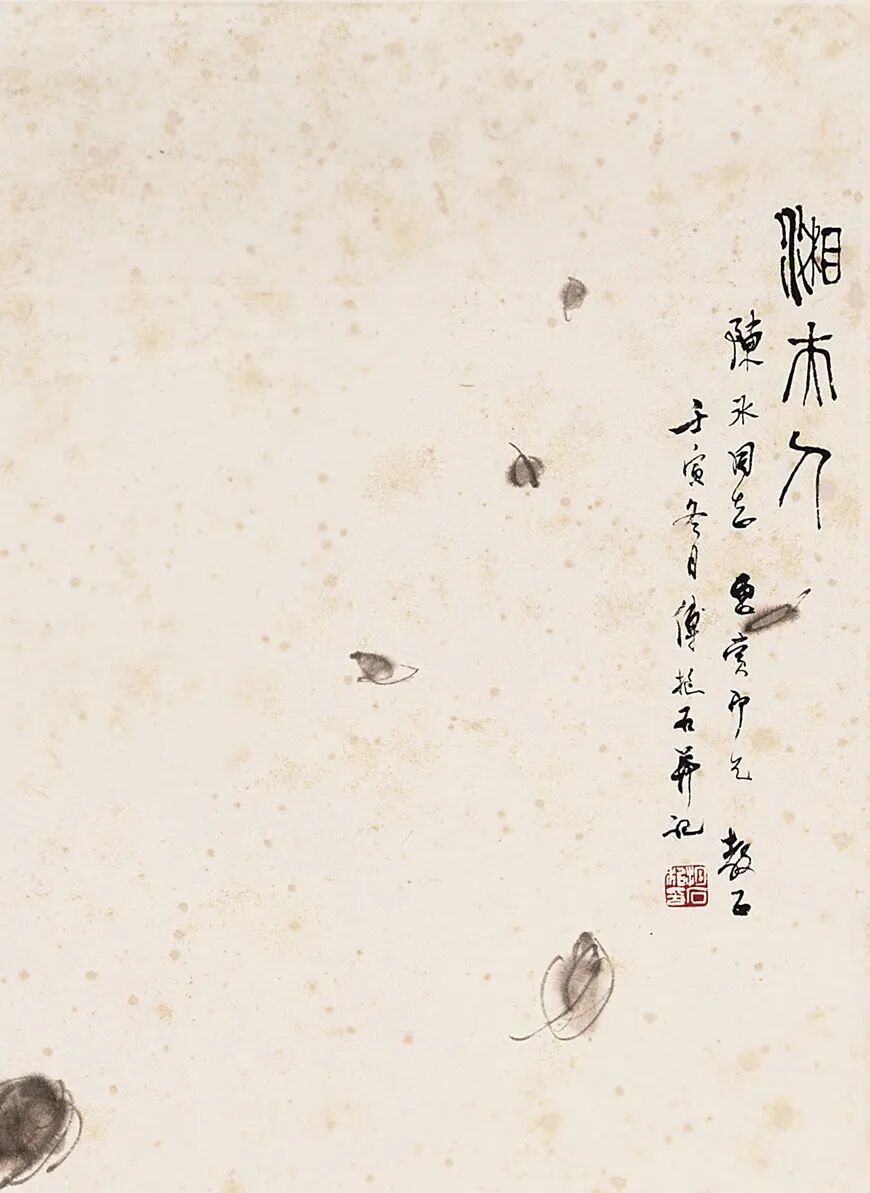 湘夫人
陳永同志 要賞即乞 教正
壬寅冬月傅抱石並記
抱石